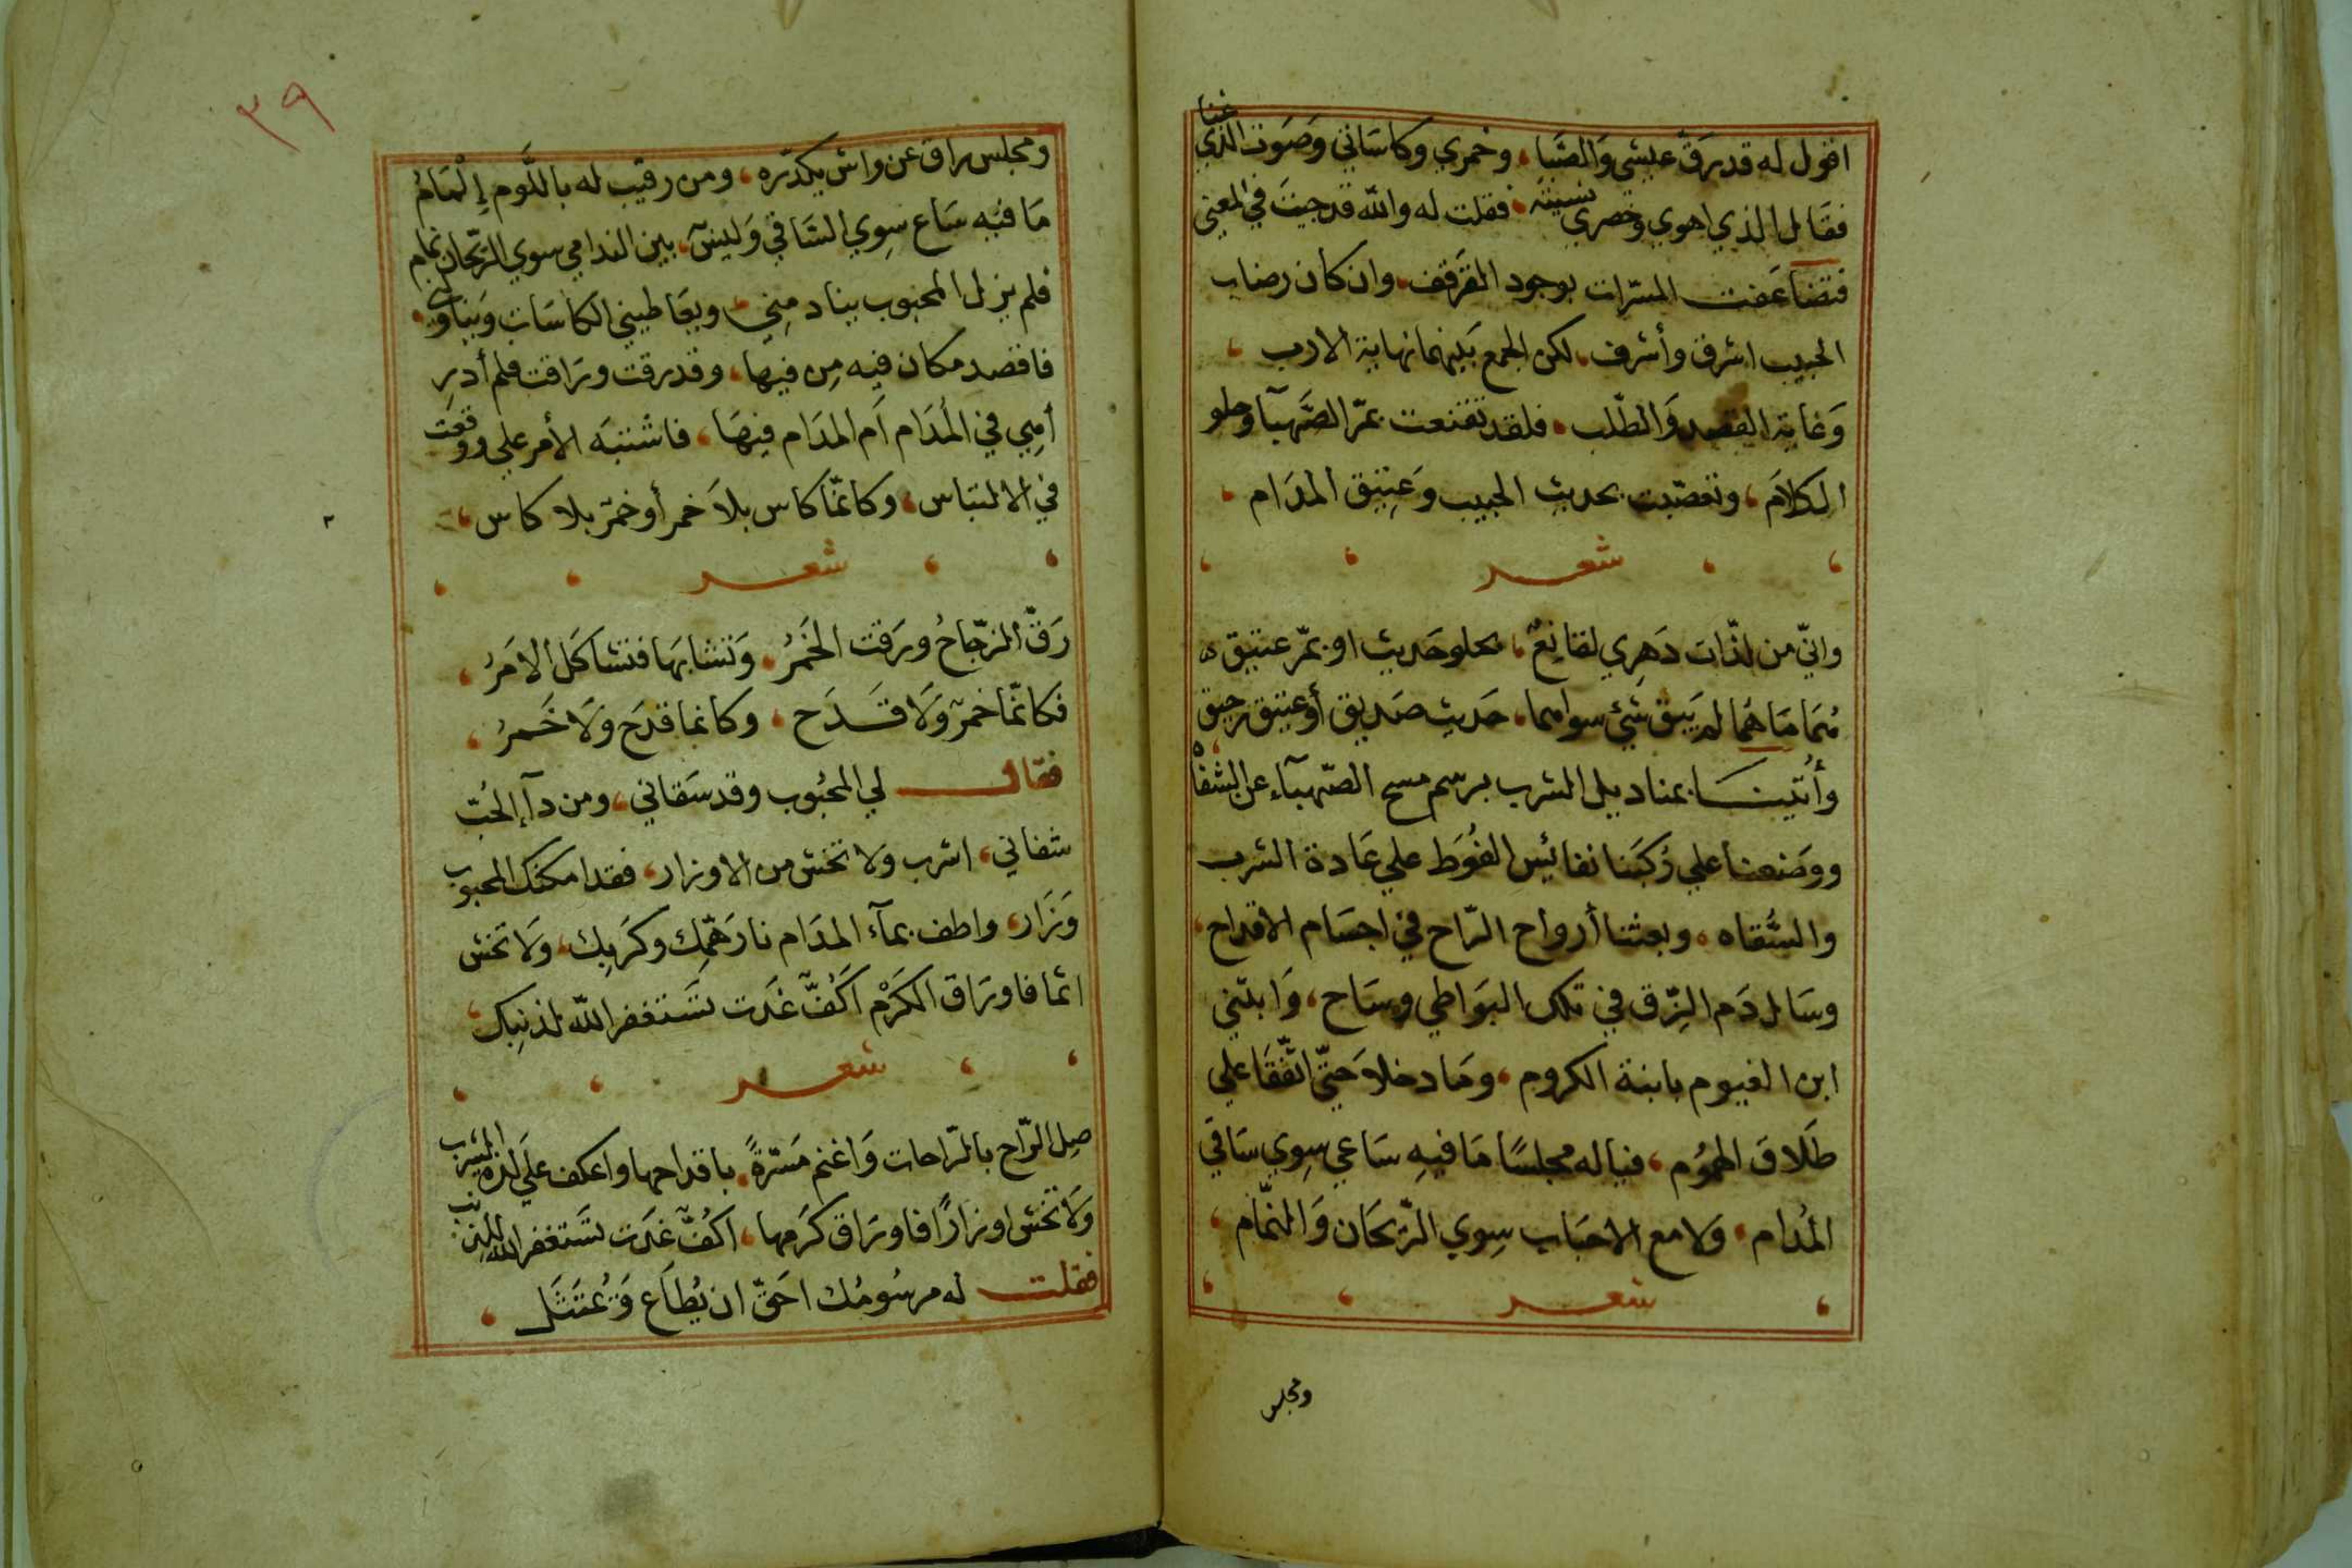 اقول له قد رَقَّ عيشي وَالصَّبا، وخمري وكاساتي وَصَوت الذي غنا
فقَال الذي اهوي وخصري نسيته، فقلت له والله قد جيتَ في المعني
فتضاعَفت المسرّات بوجود القَرقف، وان كان رضاب
الحبيب اشرق وأشرف، لكن الجمع بَينهما نهاية الارب،
وَغاية القصد وَالطّلب، فلقد تقنعت بمرّ الصَّهبآ وحلو
الكلاَم، وتعصّبت بحديث الحبيب وَعتِيق المدَام،
شعر
وانّي من لذّات دَهرِي لقانِعٌ، بحلو حَديث او بمرّ عتيق،
هُمَا مَا هُمَا لم يَبق شيْ سواهما، حَديث صَديق أو عتيق رحيق،
وأُتينَا بمناديل الشرب برسم مسح الصّهبآء عن الشفاه
ووضعنا علي رُكبَنا نفائيس الفُوَط علي عَادة الشرب
والسُّقاه، وبعثنا أرواح الرّاح في اجسَام الاقداح،
وسَال دَم الزِّق في تلك البوَاطي وسَاح، وَابتني
ابن الغيوم بابنة الكروم، ومَا دخلا حَتّي اتّفقَا علي
طَلَاق الهمُوُم، فياله مجلسًا مَا فيهِ سَاعي سِوي سَاقي
المُدام، وَلا مع الاحبَاب سِوي الرّيحَان وَالنمّام،
شعر
ومجلس
٣٩
ومجلس راق عن واش يكدّره، ومن رقيب له باللَّوم إِلْمَامُ
مَا فيه سَاع سِوي السَّاقي وَليسَ، بين الندامي سوي الرّيحان نمام
فلم يزل المحبوب ينادمِني، ويعَاطيني الكاسَات وَيناولني،
فاقصد مكان فيه مِن فيها، وقد رقت ورَاقت فلم أدرِ
أمِي في المُدَام اَم المدَام فيهَا، فاشتبَه الأمر علي ووقعَت
في الالتباس، وكانّما كاس بلاَ خمر أو خمرٌ بلا كاس،
شعر
رَقّ الزجّاجُ ورَقت الخَمرُ، وَتشابهَا فتشاكَل الامَرُ،
فكانّما خمرٌ وَلَا قَدَح، وكانما قدَح ولَا خَمرُ،
فقال لي المحبُوب وقد سَقاني، ومن دآ إلحُبّ
شفاني، اشرب ولا تخش من الاوزار، فقد امكنك المحبوب
وَزَار، واطف بمآء المدَام نار هَمّك وكَربِك، وَلَا تخش
اثما فاورَاق الكَرْم اَكفٌّ غَدَت تسَتغفر الله لذنبِك
شعر
صِل الرّاح بالرّاحات وَاغنم مَسّرةً، باقداحها واعكف علَي لذة الشرب
وَلَا تخَش اوزارًا فاورَاق كَرمِها، اكفٌّ غَدَت تسَتغفر الله للذنب
فقلت له مرسُومُك احَقّ ان يُطَاع وَيُمتَثَل،